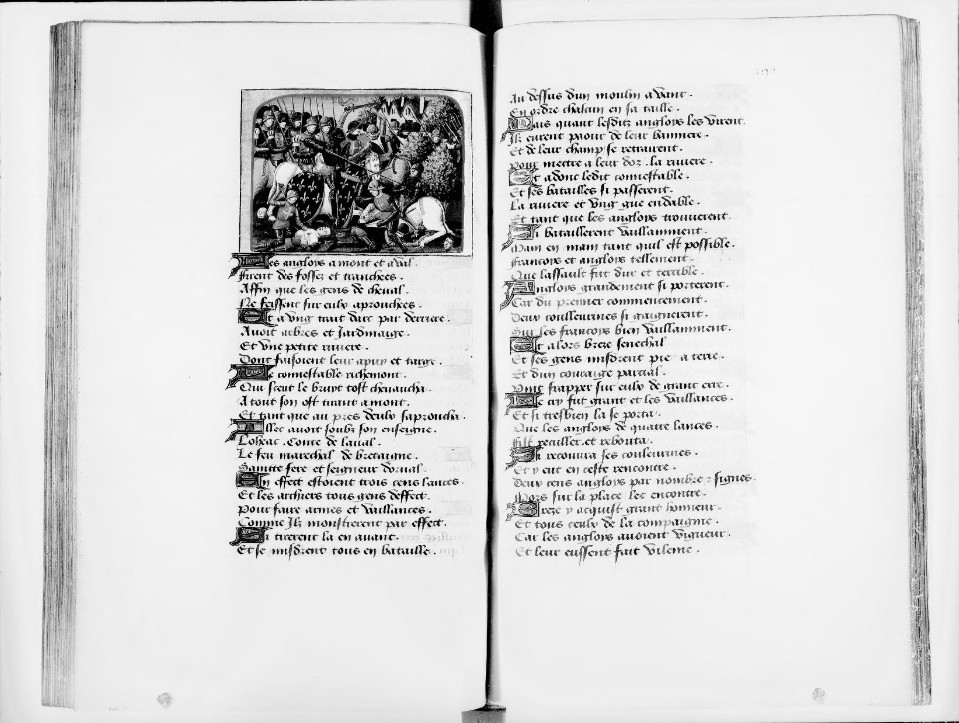 Les angloys a mont et aval.
Firent des fossez et tranchees.
Affin que les gens de cheval.
Ne feissent sur eulx aprouchees.
Et a ung trait darc par derriere.
Avoit arbres et Jardinaige.
Et une petite riviere.
Dont faisoient leur apuy et targe.
Le connestable richemont.
Qui sceut le bruyt tost chevaucha.
A tout son ost tirant a mont.
Et tant que au pres deulx saproucha.
Illec avoit soubz son enseigne.
Loheac. Conte de laval.
Le feu mareschal de bretaigne.
Saincte sere et seigneur dorval.
En effect estoient trois cens lances.
Et les archiers tous gens deffect.
Pour faire armes et vaillances.
Comme Ilz monstrerent par effect.
Si tirerent la en avant.
Et se misdrent tous en bataille.
Au dessus dun moulin a vent.
En ordre chascun en sa taille.
Mais quant lesditz angloys les virent.
Ilz eurent paour de leur banniere.
Et de leur champ se retrairent.
Pour mettre a leur doz. la riviere.
Et adont ledit connestable.
Et ses batailles si passerent.
La riviere et ung gue endable.
Et tant que les angloys trouverent.
Si bataillerent vaillamment.
Main en main tant quil est possible.
Francoys et angloys tellement.
Que lassault fut dur et terrible.
Angloys grandement si porterent.
Car du premier commencement.
Deux coulleurines si gaignerent.
Sur les francoys bien vaillamment.
Et alors breze seneschal
Et ses gens misdrent pie a terre.
Et dun couraige parcial.
Vint frapper sur eulx de grant erre.
Le cry fut grant et les vaillances.
Et si tresbien la se porta.
Que les angloys de quatre lances.
Fist reculler. et rebouta.
Et recouvra ses couleurines.
Et y eut en ceste rencontre.
Deux cens angloys par nombre z signes.
Mors sur la place lec encontre.
Breze y acquist grant honneur.
Et tous ceulx de la compaignie.
Car les angloys avoient vigueur.
Et leur eussent fait vilenie.